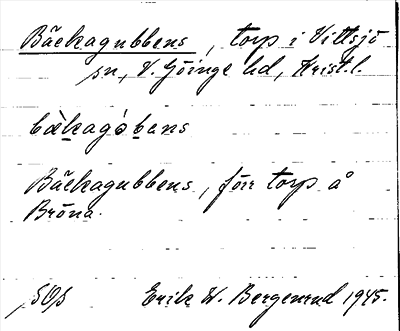 Bäckagubbens, torp i Vittsjö
sn, V. Göinge hd, Krist.l.
bækagòbens
Bäckagubbens, förr torp å
Bröna.
Erik W. Bergenrud 1945.